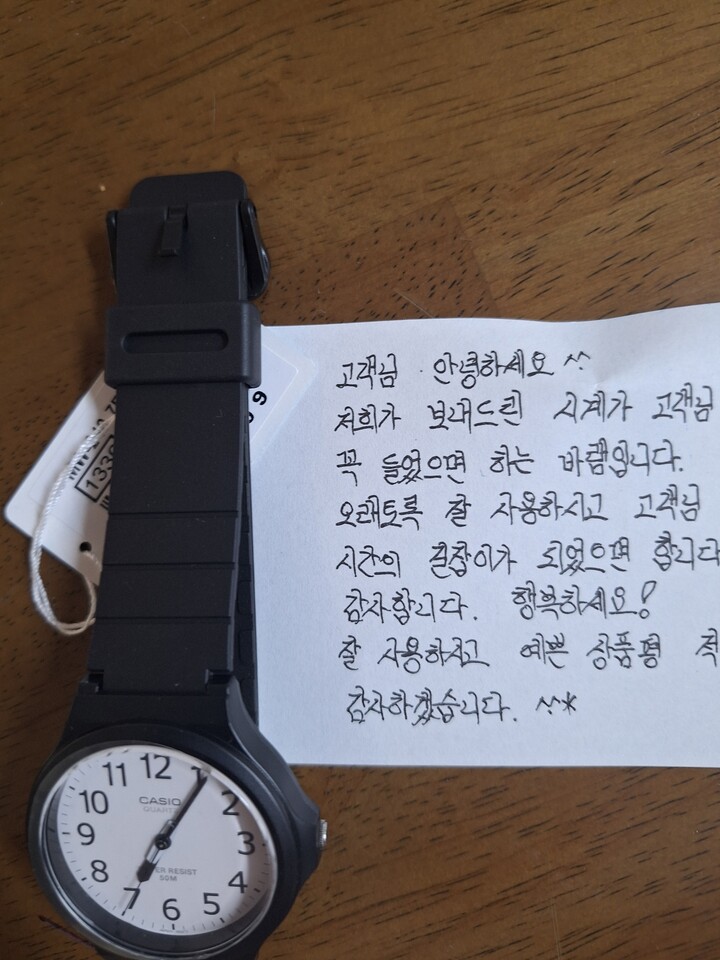 고객님 안녕하세요 ^^
저희가 보내드린 시계가 고객님
꼭 들었으면 하는 바램입니다.
오래토록 잘 사용하시고 고객님
시간의 길잡이가 되었으면 합니다
감사합니다. 행복하세요!
잘 사용하시고 예쁜 상품평 적
감사하겠습니다. ^^*
12
1
2
3
4
5
6
7
8
9
10
11
CASIO
QUARTZ
ER RESIST
50M